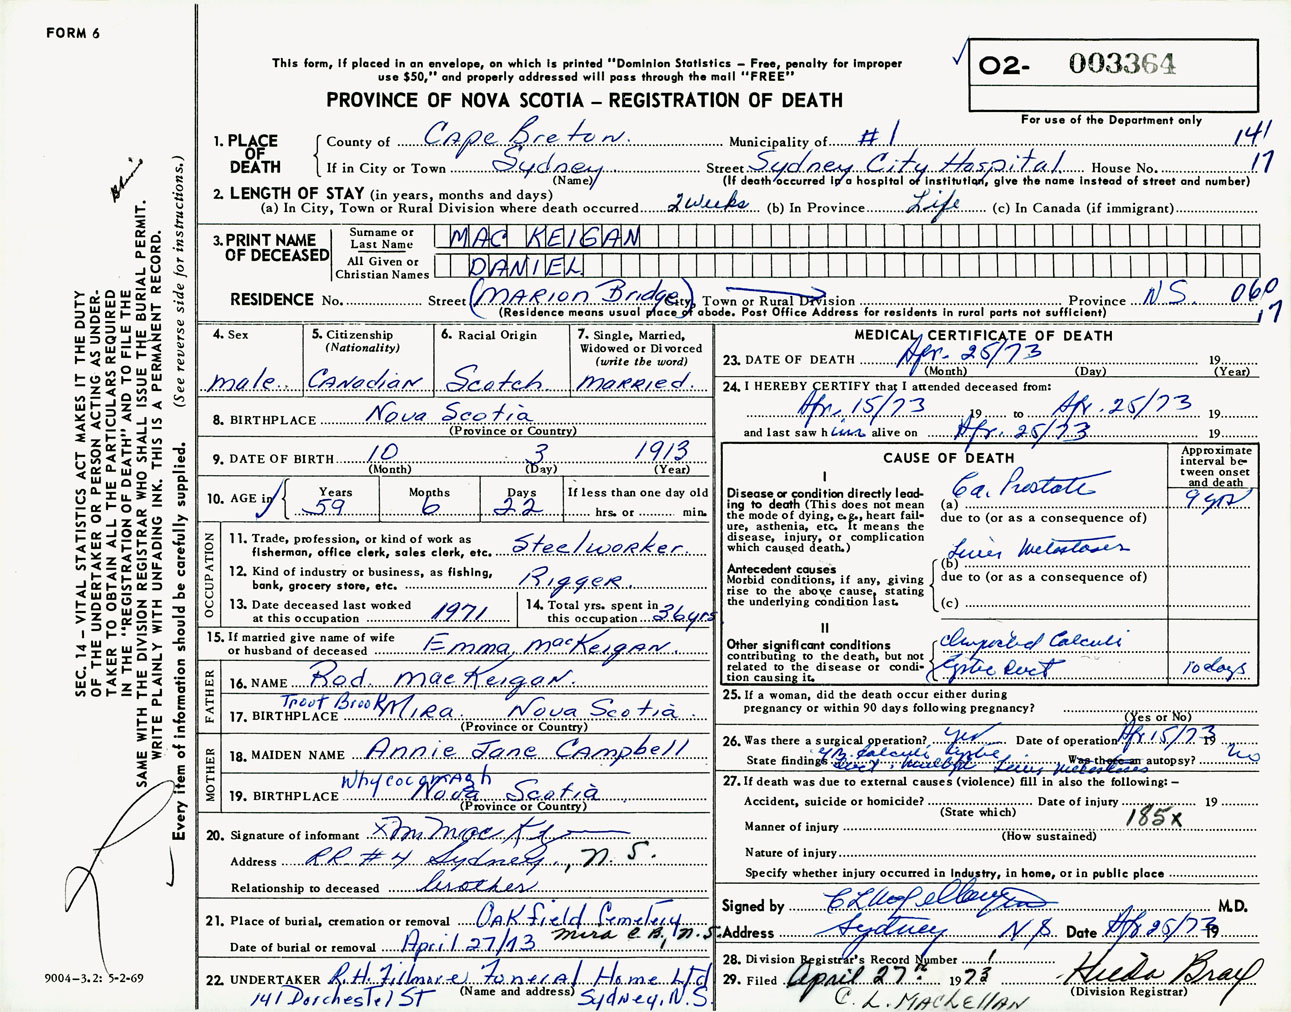 FORM 6
This form, if placed in an envelope, on which is printed "Dominion Statistics – Free, penalty for improper
use $50," and properly addressed will pass through the mail "FREE"
PROVINCE OF NOVA SCOTIA – REGISTRATION OF DEATH
O2- 003364
For use of the Department only
1. PLACE OF DEATH
County of Cape Breton. Municipality of #1 141
If in City or Town Sydney Street Sydney City Hospital House No. 17
(Name) (If death occurred in a hospital or institution, give the name instead of street and number)
2. LENGTH OF STAY (in years, months and days)
(a) In City, Town or Rural Division where death occurred 2 weeks (b) In Province Life (c) In Canada (if immigrant)
3. PRINT NAME OF DECEASED
Surname or Last Name MAC KEIGAN
All Given or Christian Names DANIEL
RESIDENCE No. Street (MARION Bridge) City, Town or Rural Division Province N.S. 060
(Residence means usual place of abode. Post Office Address for residents in rural parts not sufficient) 17
4. Sex male
5. Citizenship (Nationality) CANADIAN
6. Racial Origin Scotch
7. Single, Married, Widowed or Divorced (write the word) MARRIED.
8. BIRTHPLACE Nova Scotia
(Province or Country)
9. DATE OF BIRTH 10 3 1913
(Month) (Day) (Year)
10. AGE in Years 59 Months 6 Days 22 If less than one day old hrs. or min.
OCCUPATION
11. Trade, profession, or kind of work as fisherman, office clerk, sales clerk, etc. Steelworker.
12. Kind of industry or business, as fishing, bank, grocery store, etc. Rigger.
13. Date deceased last worked at this occupation 1971
14. Total yrs. spent in this occupation 36 yrs
15. If married give name of wife or husband of deceased Emma MacKeigan.
FATHER
16. NAME Rod. MacKeigan.
Trout Brook
17. BIRTHPLACE Mira. Nova Scotia
(Province or Country)
MOTHER
18. MAIDEN NAME Annie Jane Campbell
Whycocomagh
19. BIRTHPLACE Nova Scotia
(Province or Country)
20. Signature of informant x M. Mac
Address RR #4 Sydney, N.S.
Relationship to deceased brother
21. Place of burial, cremation or removal Oakfield Cemetery
Mira C.B., N.S.
Date of burial or removal April 27/73
22. UNDERTAKER R.H. Filmore Funeral Home Ltd
(Name and address)
141 Dorchester St Sydney, N.S.
MEDICAL CERTIFICATE OF DEATH
23. DATE OF DEATH Apr. 25/73 19
(Month) (Day) (Year)
24. I HEREBY CERTIFY that I attended deceased from:
Apr. 15/73 19 to Apr. 25/73 19
and last saw him alive on Apr. 25/73 19
CAUSE OF DEATH
Approximate interval between onset and death
I
Disease or condition directly leading to death (This does not mean the mode of dying, e.g., heart failure, asthenia, etc. It means the disease, injury, or complication which caused death.)
(a) Ca. Prostate 9 yrs
due to (or as a consequence of)
Antecedent causes
Morbid conditions, if any, giving rise to the above cause, stating the underlying condition last.
(b) Liver Metastases
due to (or as a consequence of)
(c)
II
Other significant conditions contributing to the death, but not related to the disease or condition causing it.
Impacted Calculi
Cystic Duct 10 days
25. If a woman, did the death occur either during pregnancy or within 90 days following pregnancy?
(Yes or No)
26. Was there a surgical operation? yes Date of operation Apr 15/73 19
State findings G.B. Calculi, Cystic Duct, Multiple Liver Metastases Was there an autopsy? No
27. If death was due to external causes (violence) fill in also the following: –
Accident, suicide or homicide? Date of injury 19
(State which)
Manner of injury 185x
(How sustained)
Nature of injury
Specify whether injury occurred in Industry, in home, or in public place
Signed by C L MacLellan M.D.
Address Sydney N S Date Apr. 25/73 19
28. Division Registrar's Record Number 1
29. Filed April 27th 1973 Hilda Bray
(Division Registrar)
C. L. MACLELLAN
SEC. 14 – VITAL STATISTICS ACT MAKES IT THE DUTY
OF THE UNDERTAKER OR PERSON ACTING AS UNDER-
TAKER TO OBTAIN ALL THE PARTICULARS REQUIRED
IN THE "REGISTRATION OF DEATH" AND TO FILE THE
SAME WITH THE DIVISION REGISTRAR WHO SHALL ISSUE THE BURIAL PERMIT.
WRITE PLAINLY WITH UNFADING INK. THIS IS A PERMANENT RECORD.
Every item of information should be carefully supplied. (See reverse side for instructions.)
9004–3.2: 5-2-69